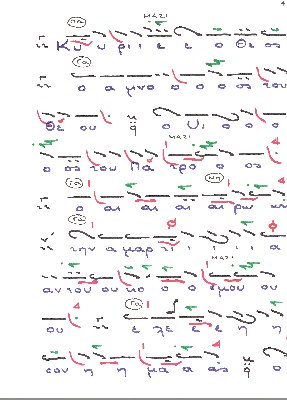 ΜΑΖΙ
Κυ υ ρι ι ε ε ο Θε ος
ο α μνο ο ο ο ος του
Θε ου ο υι ο ο ο
ΜΑΖΙ
ο ος του Πα τρο ο ος
ο αι αι αι αι ρω
την α μαρ τι ι ι ι α
ΜΑΖΙ
αν του ου κο ο ο σμου ου
ου ε λε ε ε η η
σον η η μα α ας ο